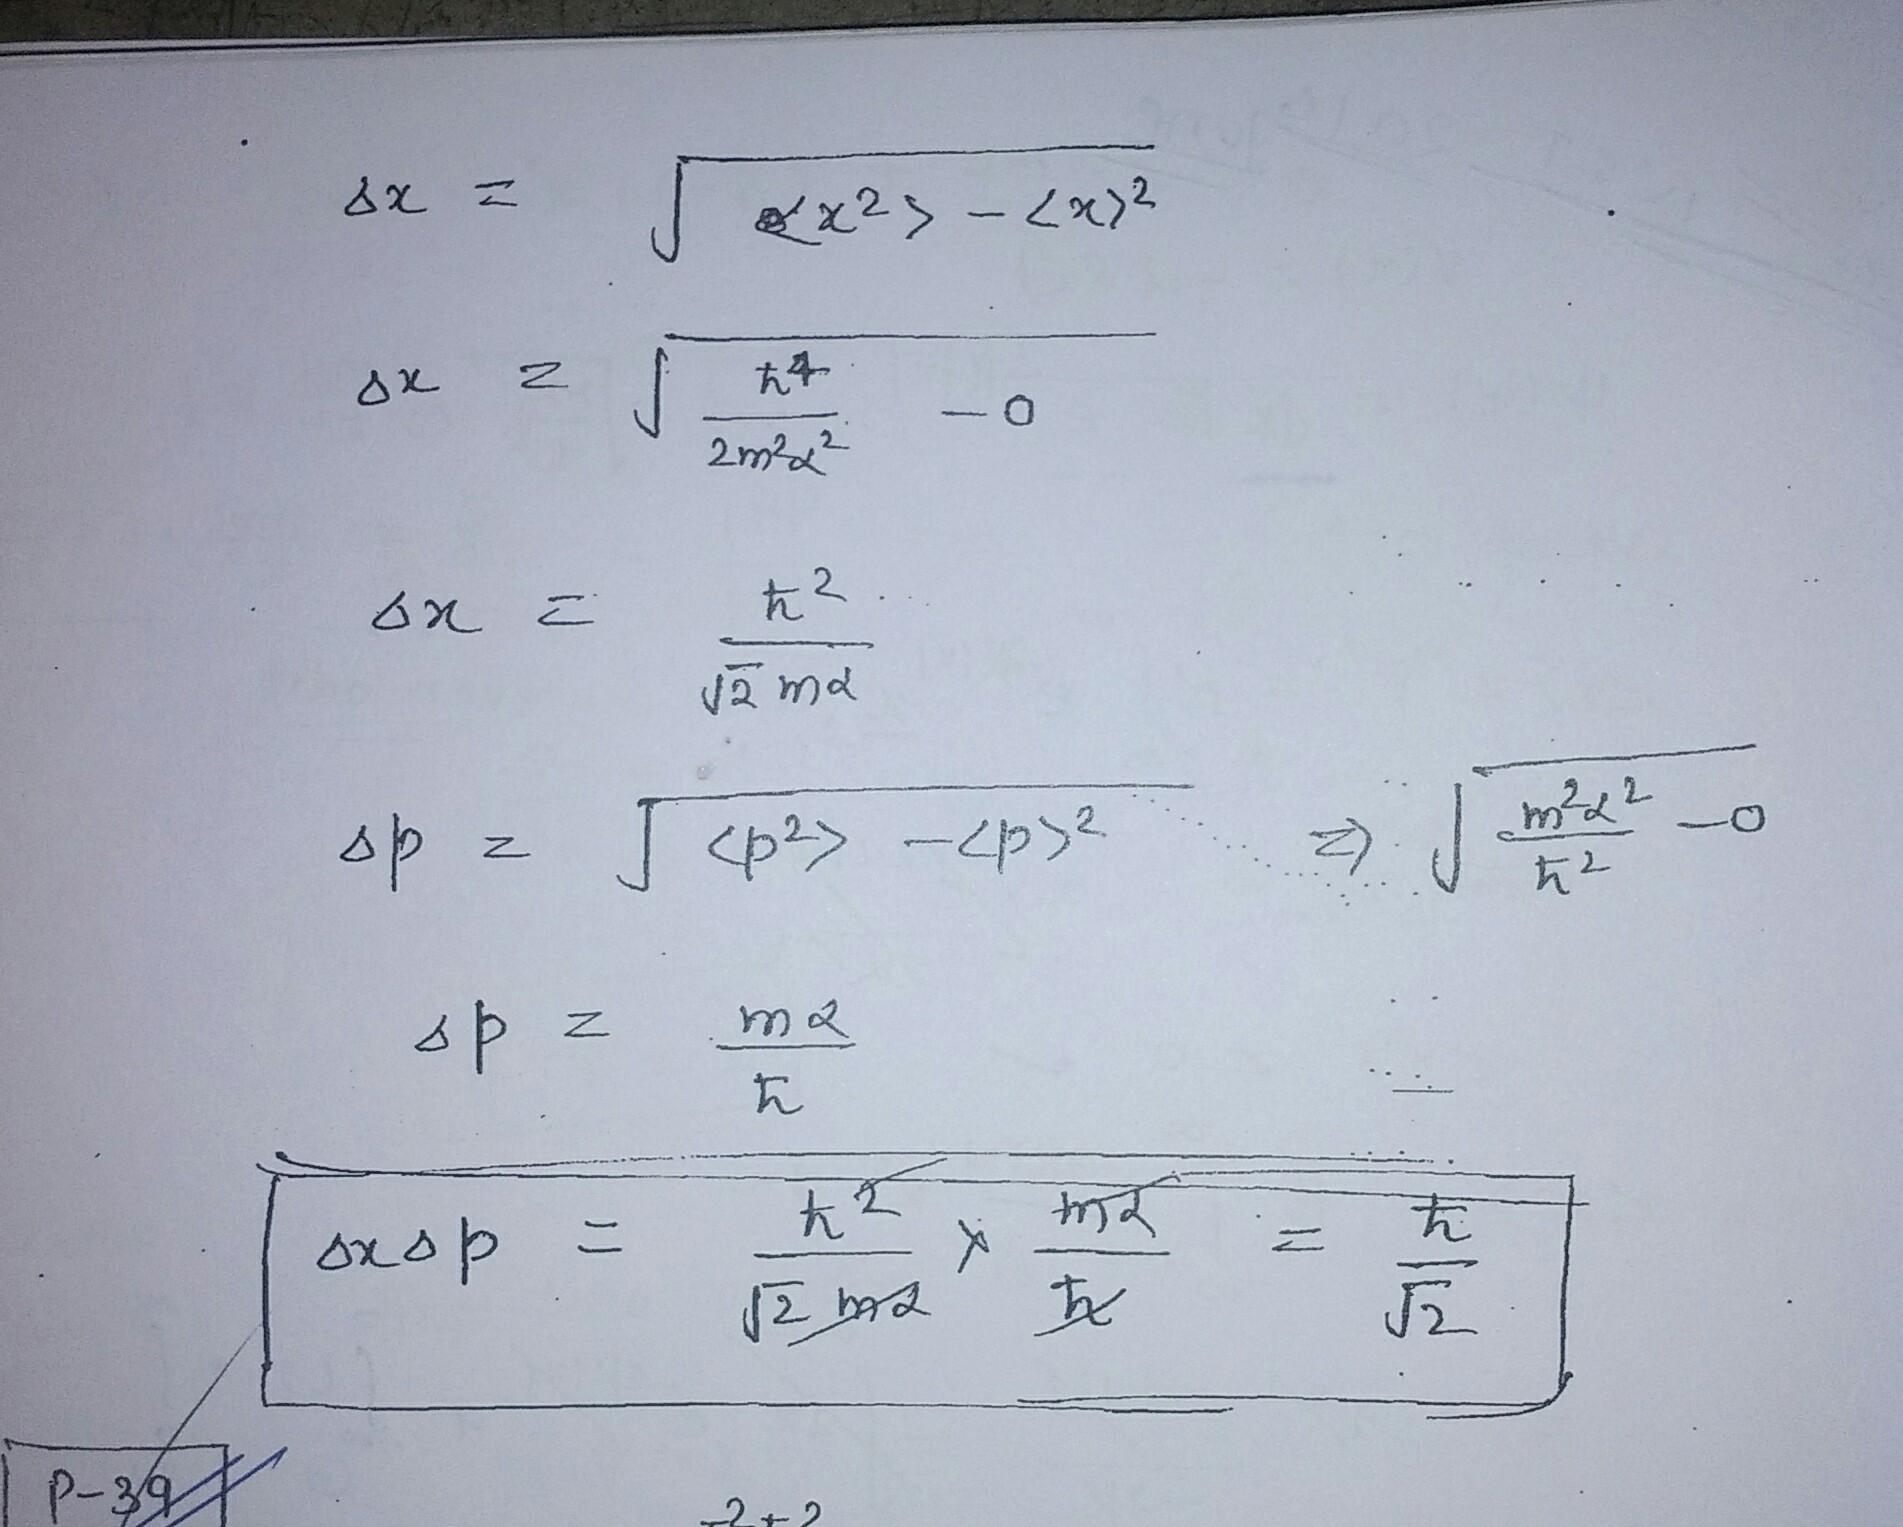 Δx = √(<x²> - <x>²)
Δx = √(ħ⁴/2m²α² - 0)
Δx = ħ²/√2 mα
Δp = √(<p²> - <p>²) ⇒ √(m²α²/ħ² - 0)
Δp = mα/ħ
ΔxΔp = ħ²/√2 mα × mα/ħ = ħ/√2
P-39